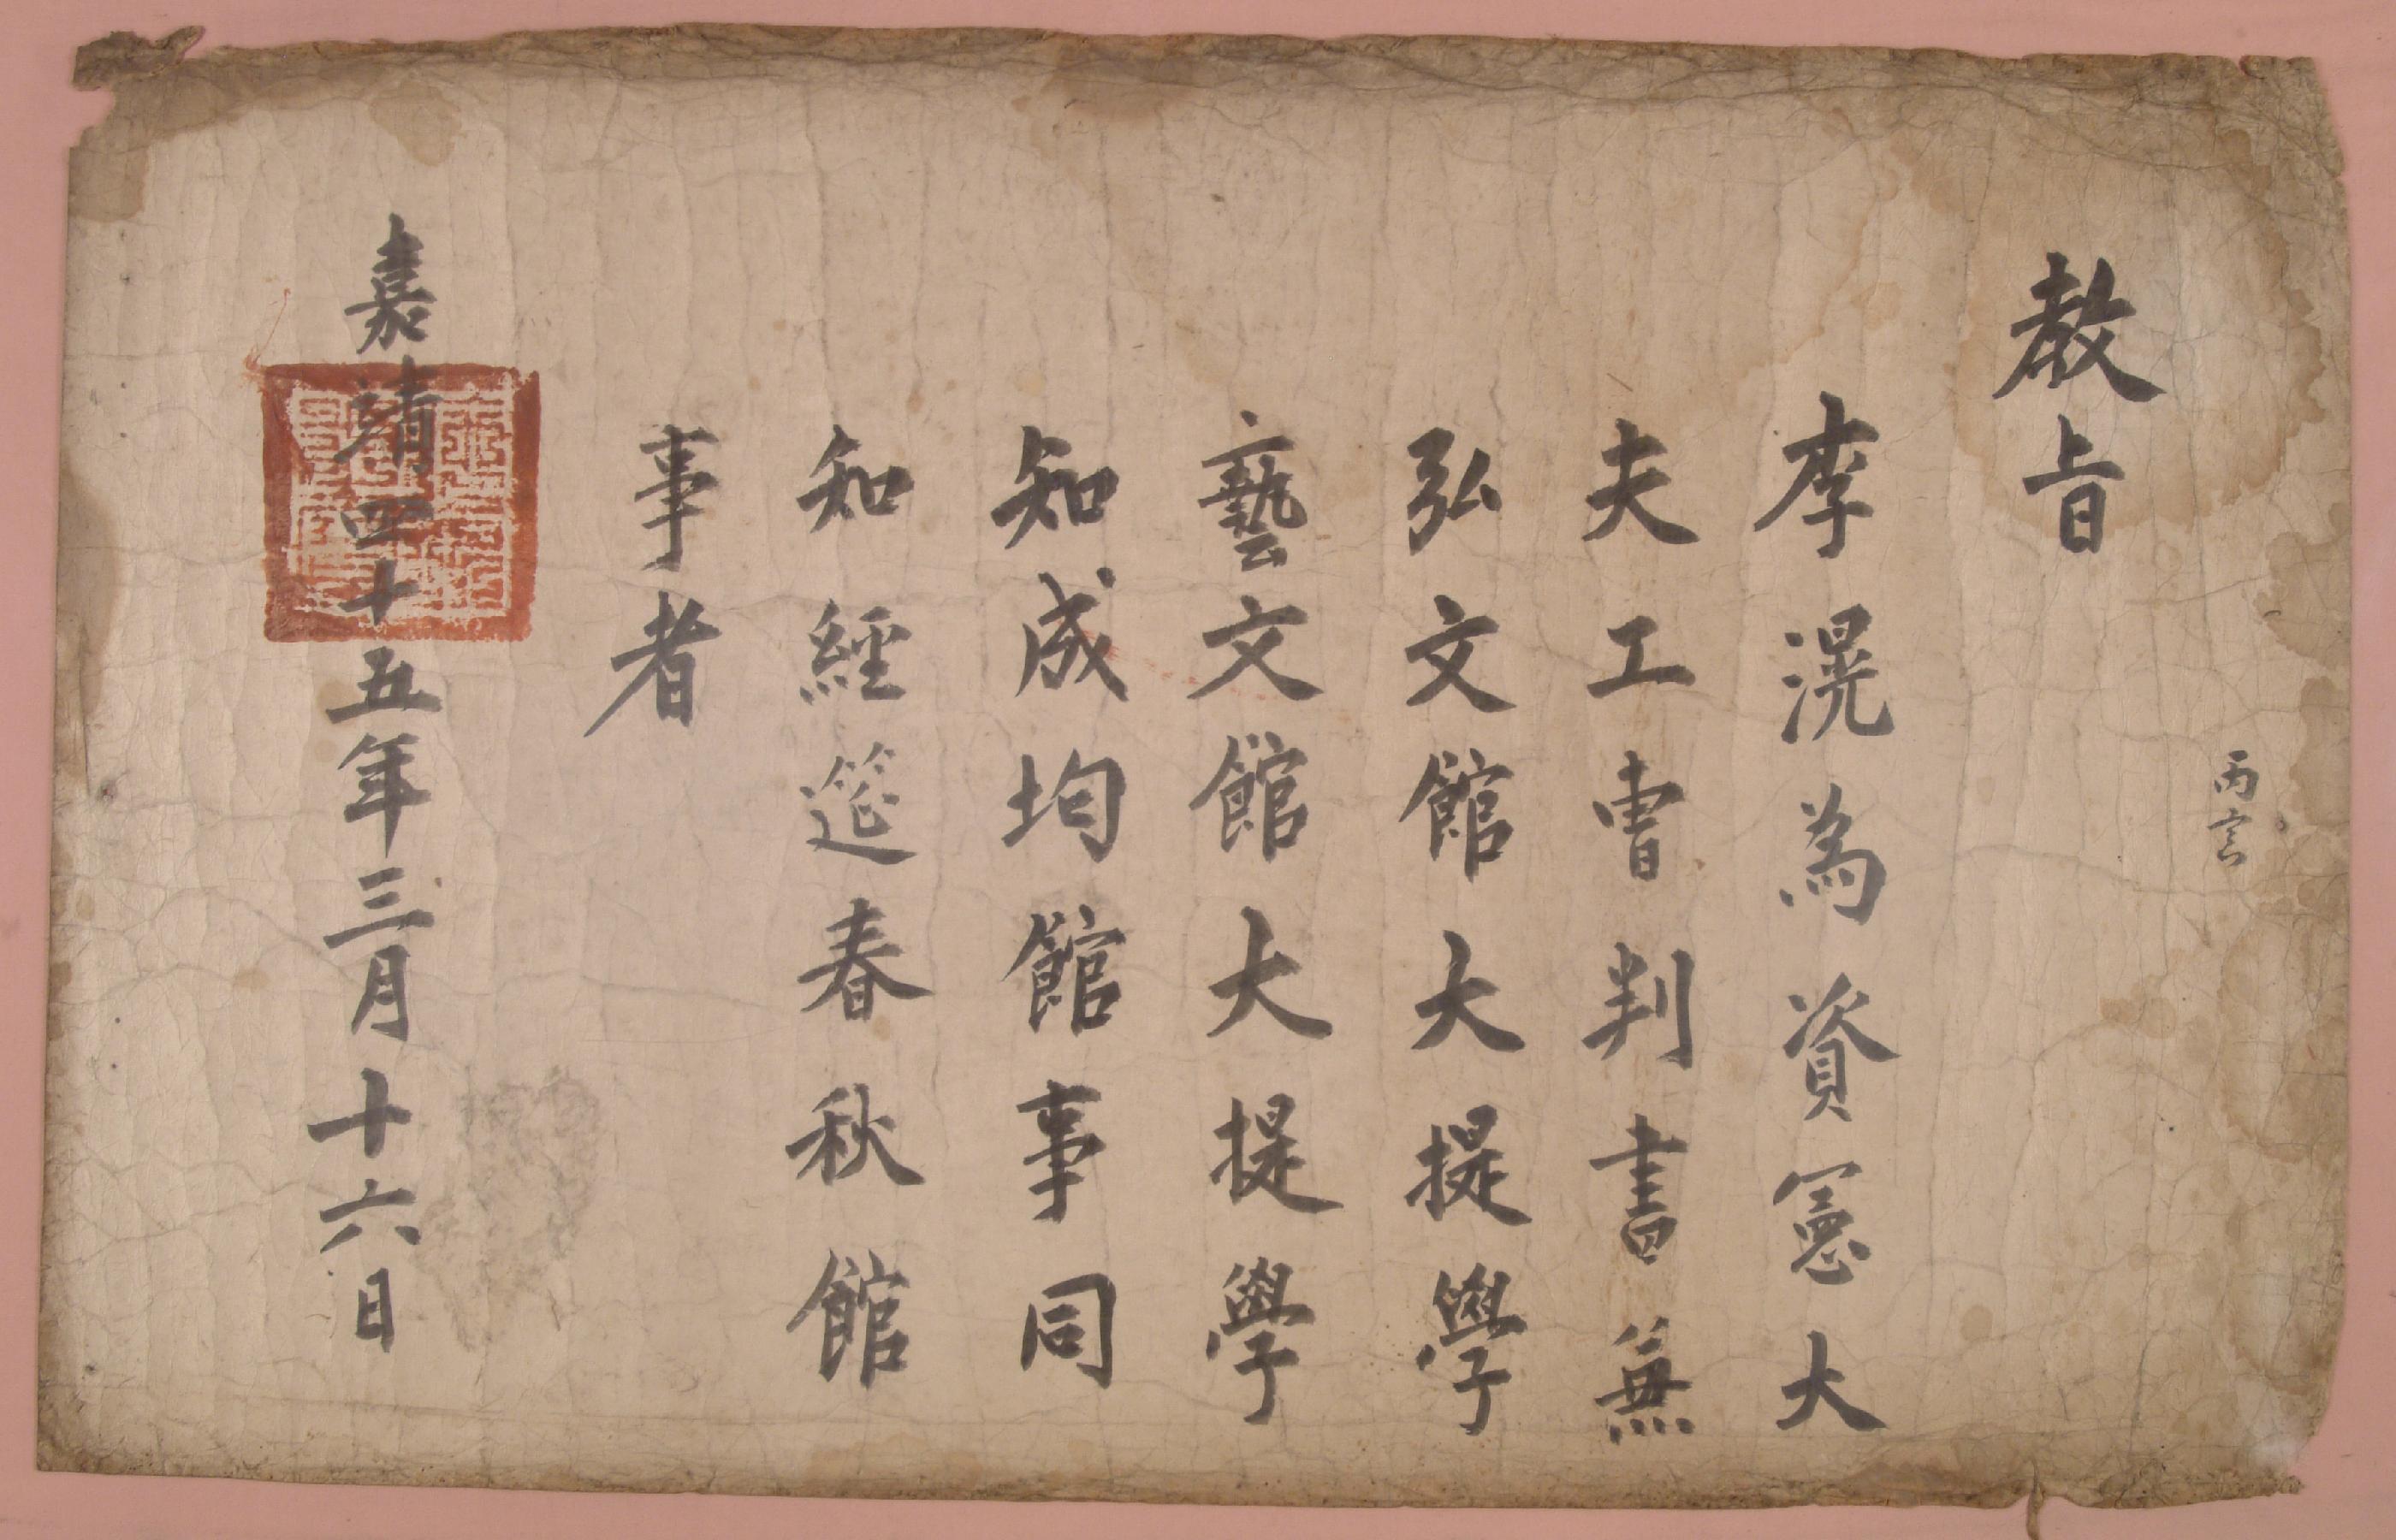 丙寅
教旨
李滉為資憲大
夫工曺判書兼
弘文館大提學
藝文館大提學
知成均館事同
知經筵春秋館
事者
嘉靖四十五年三月十六日